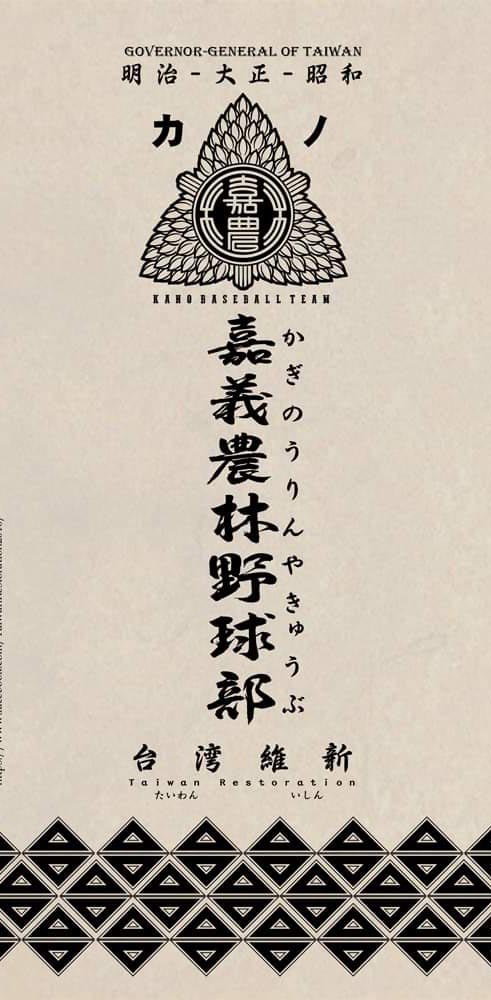 GOVERNOR-GENERAL OF TAIWAN
明治-大正-昭和
カノ
嘉農
KANO BASEBALL TEAM
嘉義農林野球部
かぎのうりんやきゅうぶ
台湾維新
Taiwan Restoration
たいわん いしん